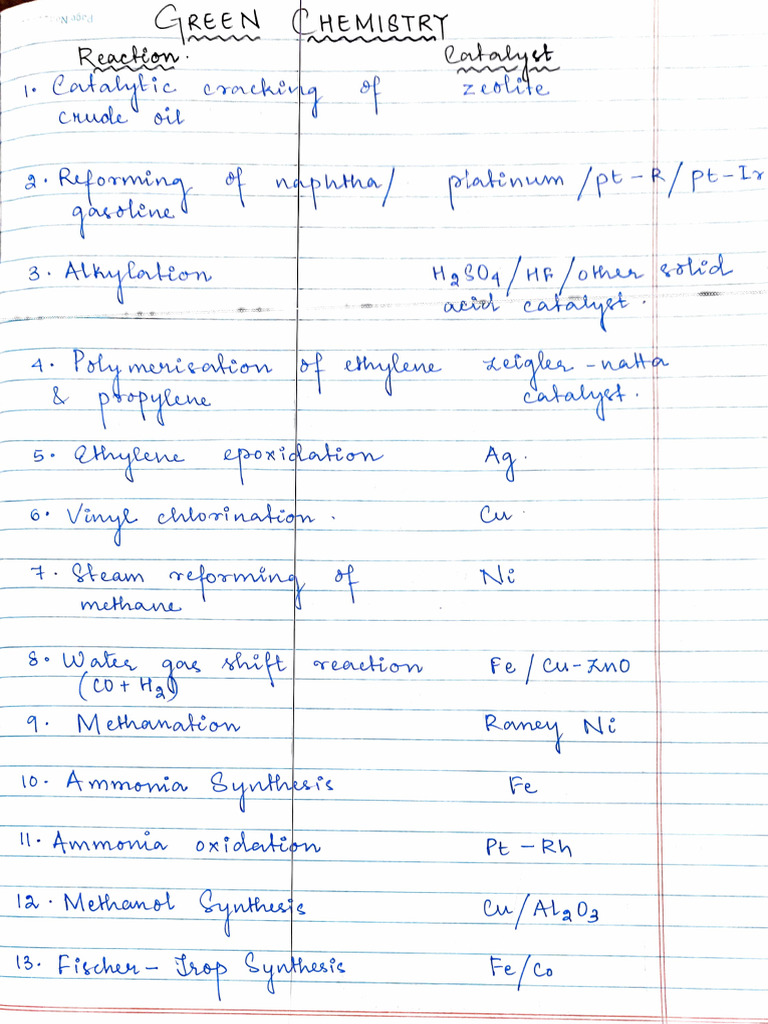 Page No.
GREEN CHEMISTRY
Reaction. Catalyst
1. Catalytic cracking of zeolite
crude oil
2. Reforming of naphtha/ platinum /pt-R/pt-Ir
gasoline
3. Alkylation H2SO4/HF/other solid
acid catalyst.
4. Polymerisation of ethylene zeigler-natta
& propylene catalyst.
5. Ethylene epoxidation Ag.
6. Vinyl chlorination. Cu.
7. Steam reforming of Ni
methane
8. Water gas shift reaction Fe/Cu-ZnO
(CO + H2)
9. Methanation Raney Ni
10. Ammonia Synthesis Fe
11. Ammonia oxidation Pt-Rh
12. Methanol Synthesis Cu/Al2O3
13. Fischer-Trop Synthesis Fe/Co